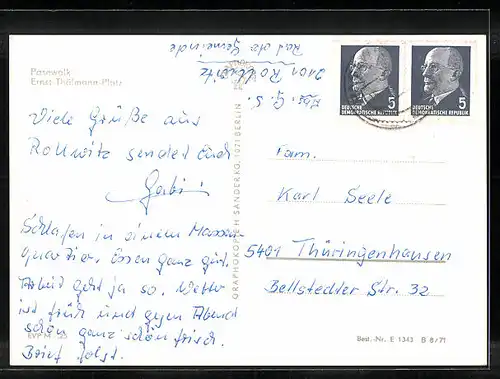 Pasewalk
Ernst-Thälmann-Platz
Viele Grüße aus
Rollwitz sendet Euch
Gabi
Schlafen in einem Massen-
quartier, Essen ganz gut.
Arbeit geht ja so. Wetter
ist früh und gegen Abend
schön ganz schön frisch.
Brief folgt.
EVP M
2101 Rollwitz
Rat der Gemeinde
GRAPHOKOPIE H. SANDER KG, 1071 BERLIN
5
DEUTSCHE
DEMOKRATISCHE REPUBLIK
5
DEUTSCHE
DEMOKRATISCHE REPUBLIK
Fam.
Karl Seele
5401 Thüringenhausen
Bellstedter Str. 32
Best.-Nr. E 1343 B 8/71